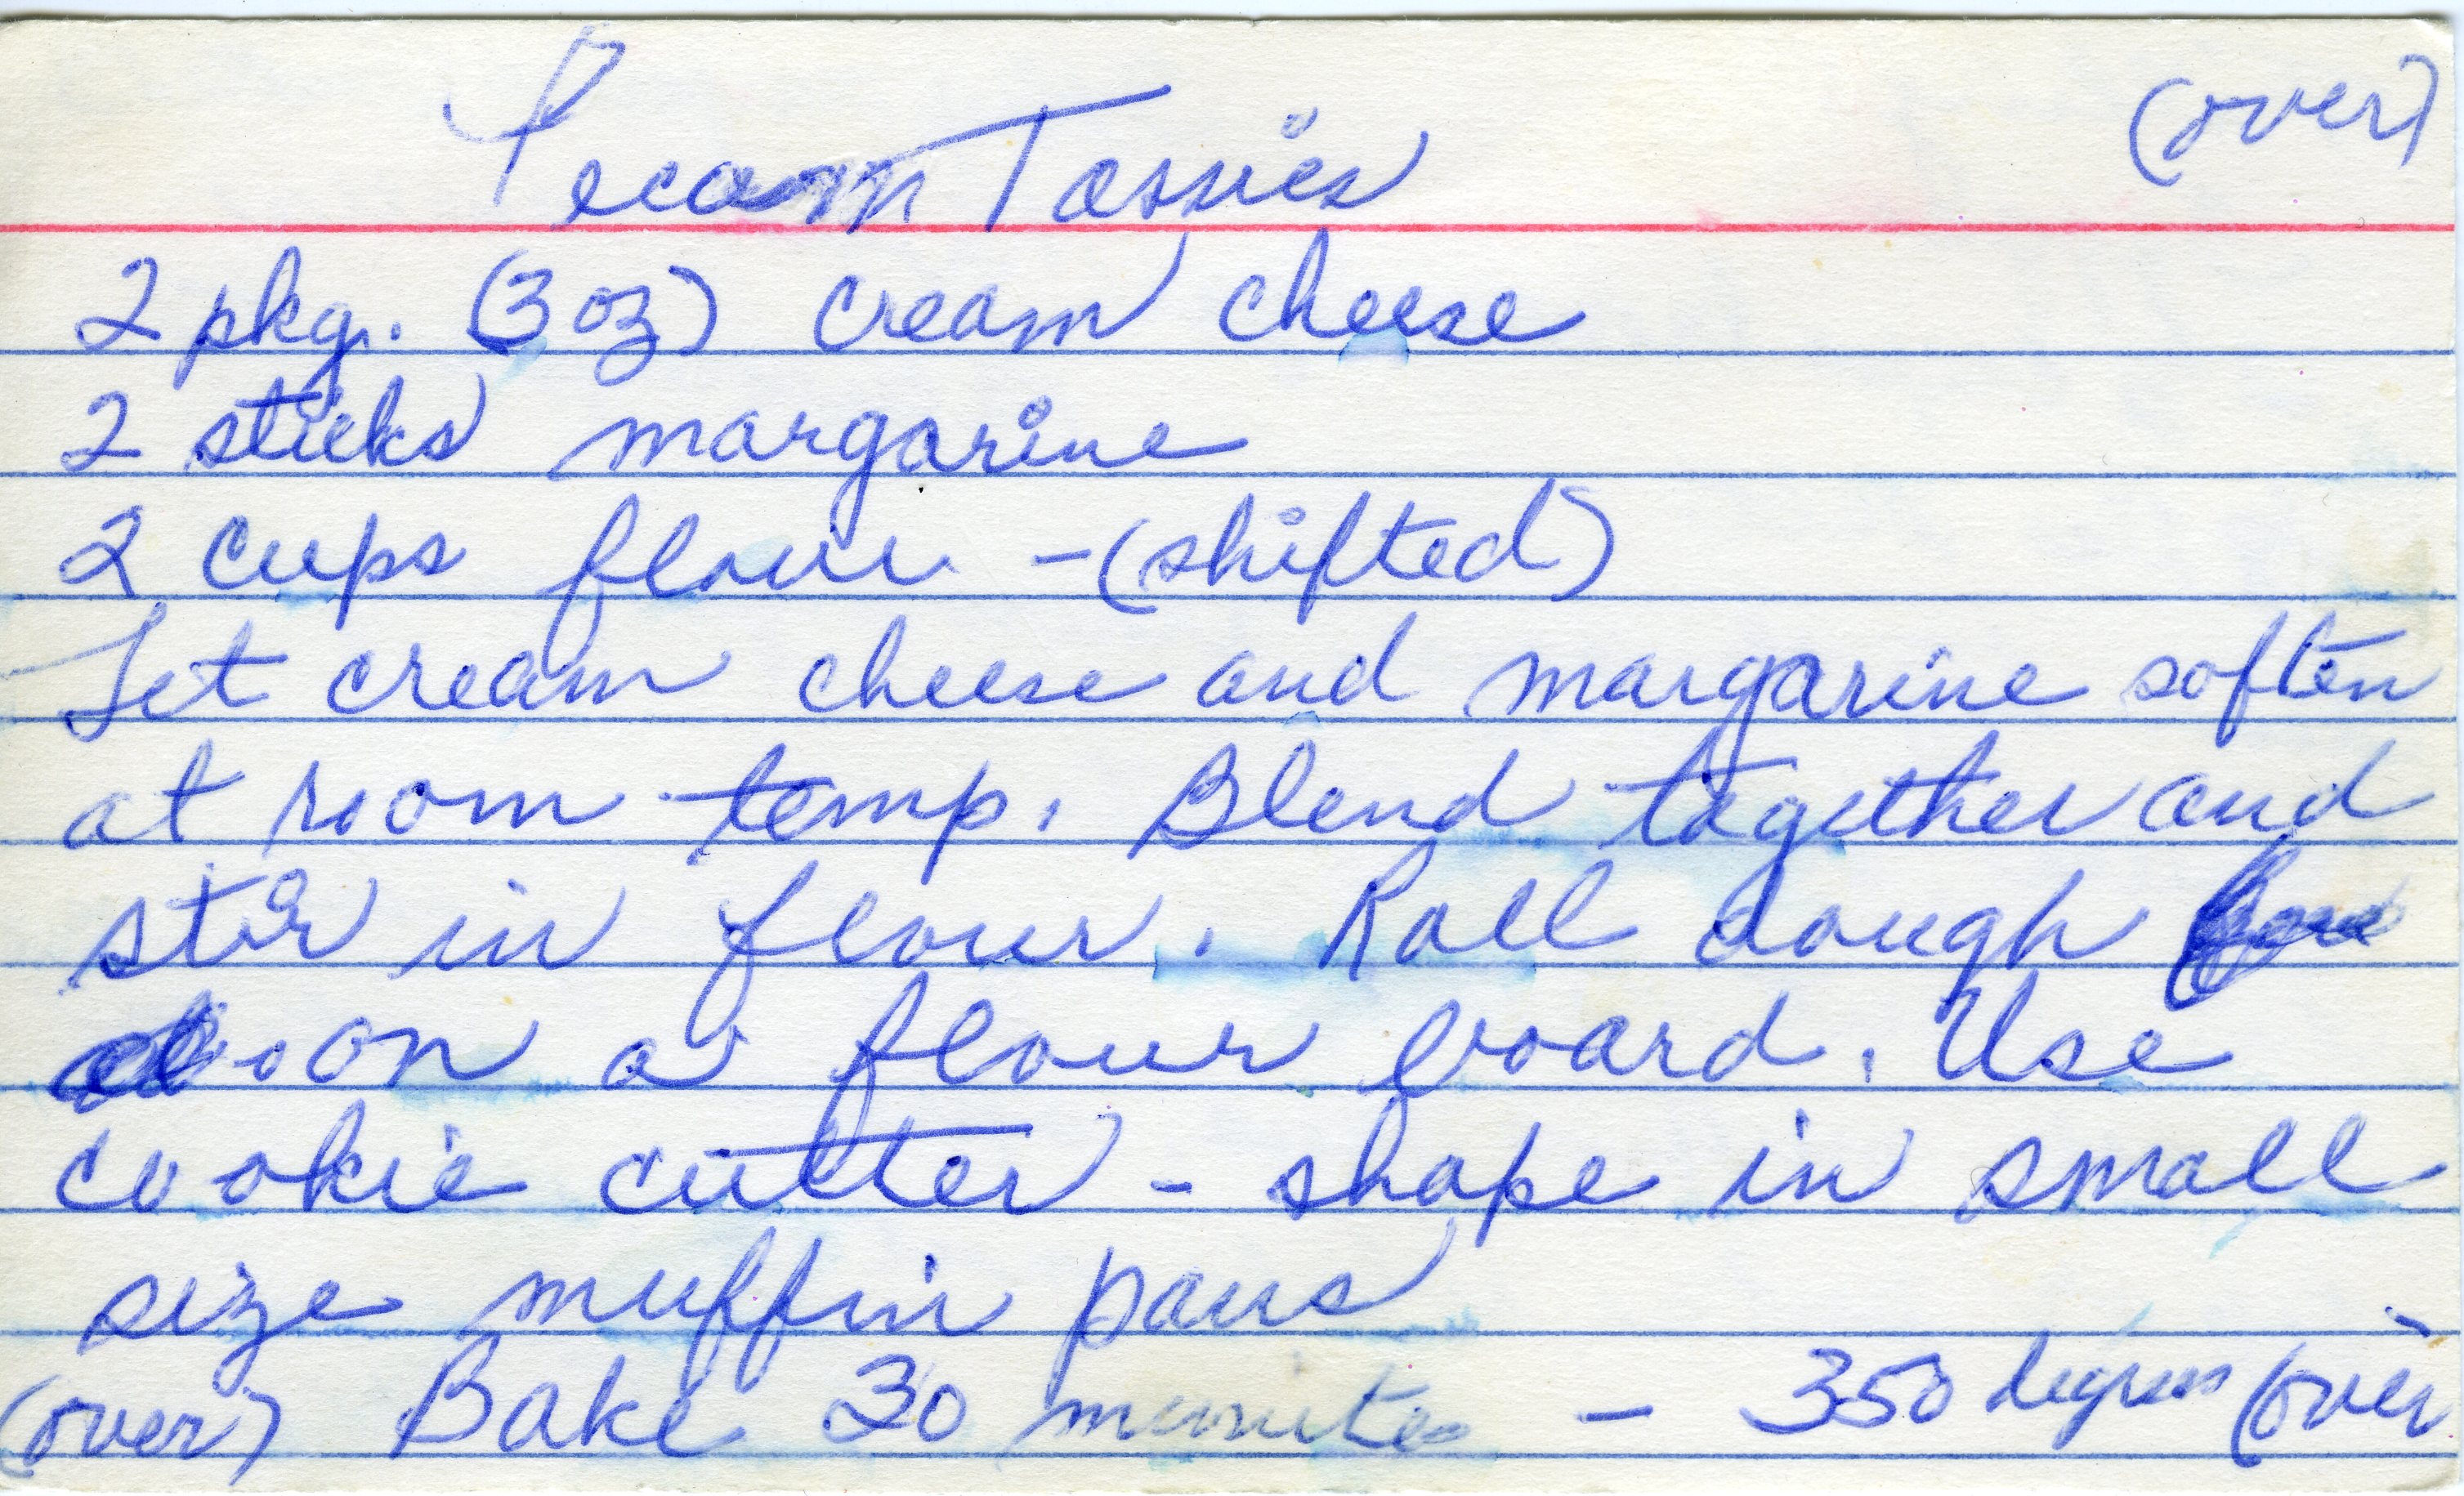 Pecan Tassies (over)
2 pkg. (3 oz) cream cheese
2 sticks margarine
2 cups flour - (shifted)
Let cream cheese and margarine soften
at room temp. Blend together and
stir in flour. Roll dough
on a flour board. Use
cookie cutter - shape in small
size muffin pans
(over) Bake 30 minutes - 350 degrees (over